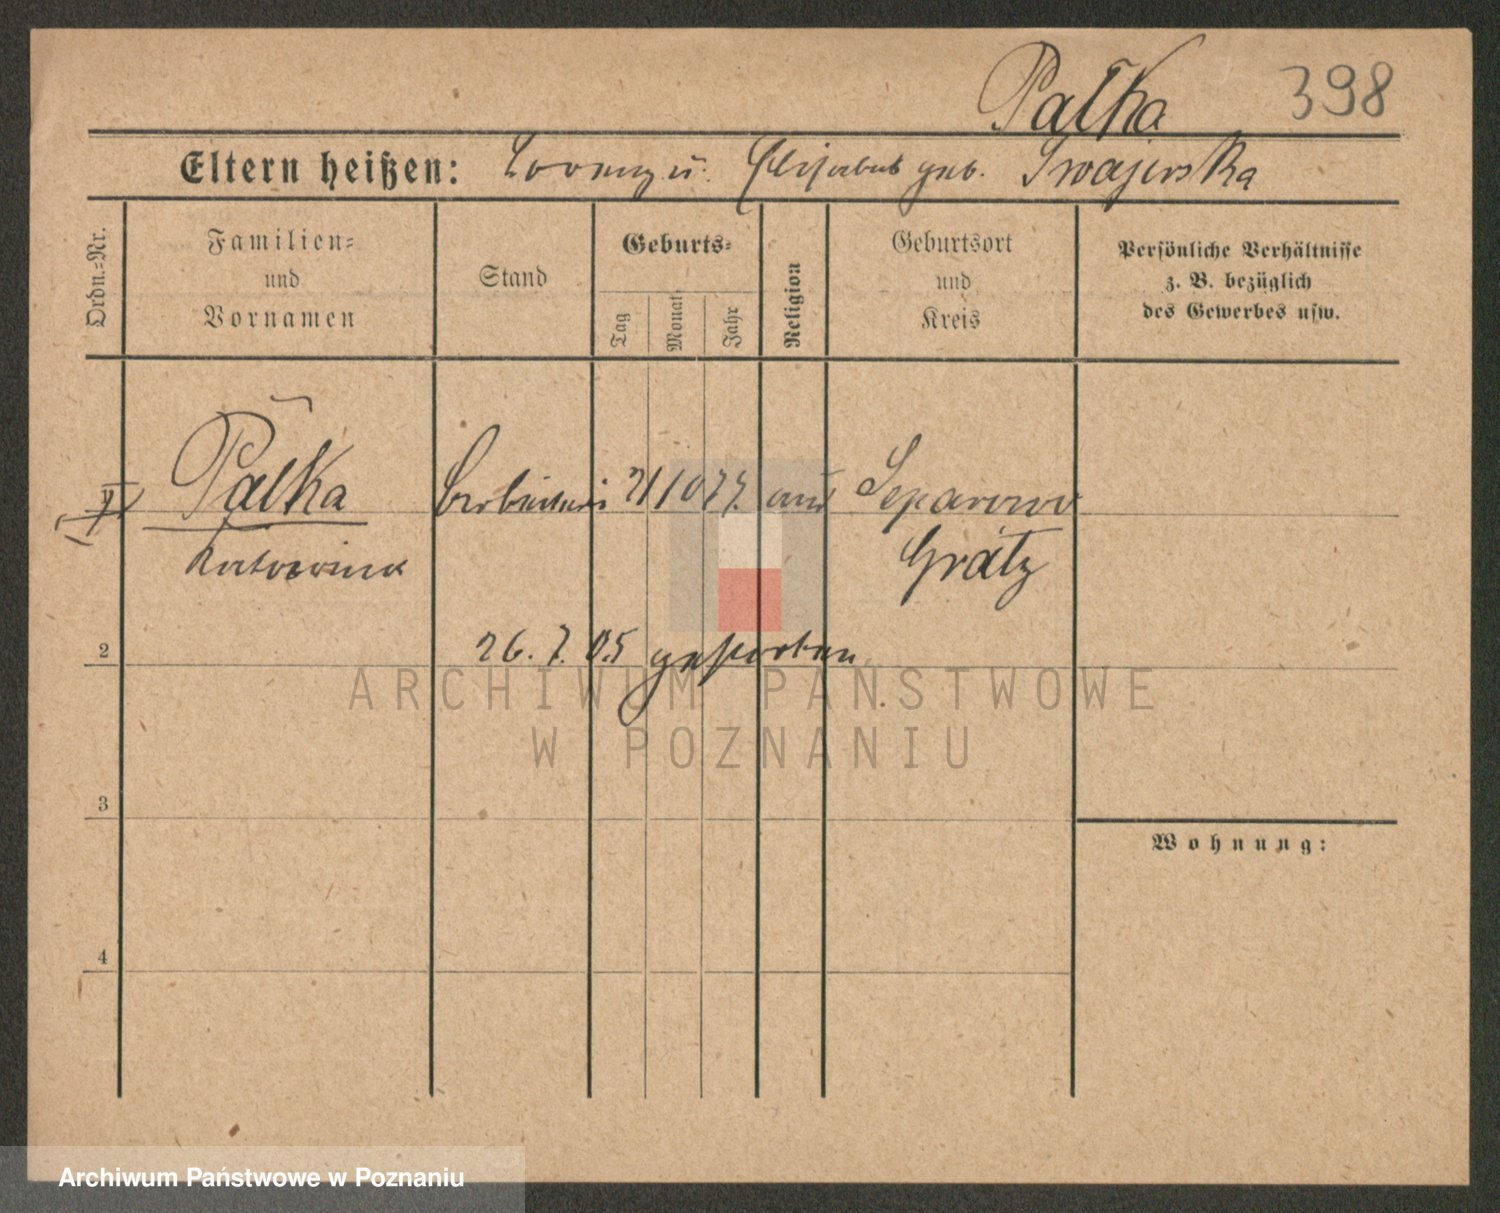 Pałka 398
Eltern heißen: Lorenz u. Elisabeth geb. Iwajerska
Ordn.=Nr.
Familien=
und
Vornamen
Stand
Geburts=
Tag
Monat
Jahr
Religion
Geburtsort
und
Kreis
Persönliche Verhältnisse
z. B. bezüglich
des Gewerbes usw.
Pałka Arbeiterin 21 10 77. Separowo
Katarina Grätz
2
26. 7. 05 gestorben
ARCHIWUM PAŃSTWOWE
W POZNANIU
3
Wohnung:
4
Archiwum Państwowe w Poznaniu